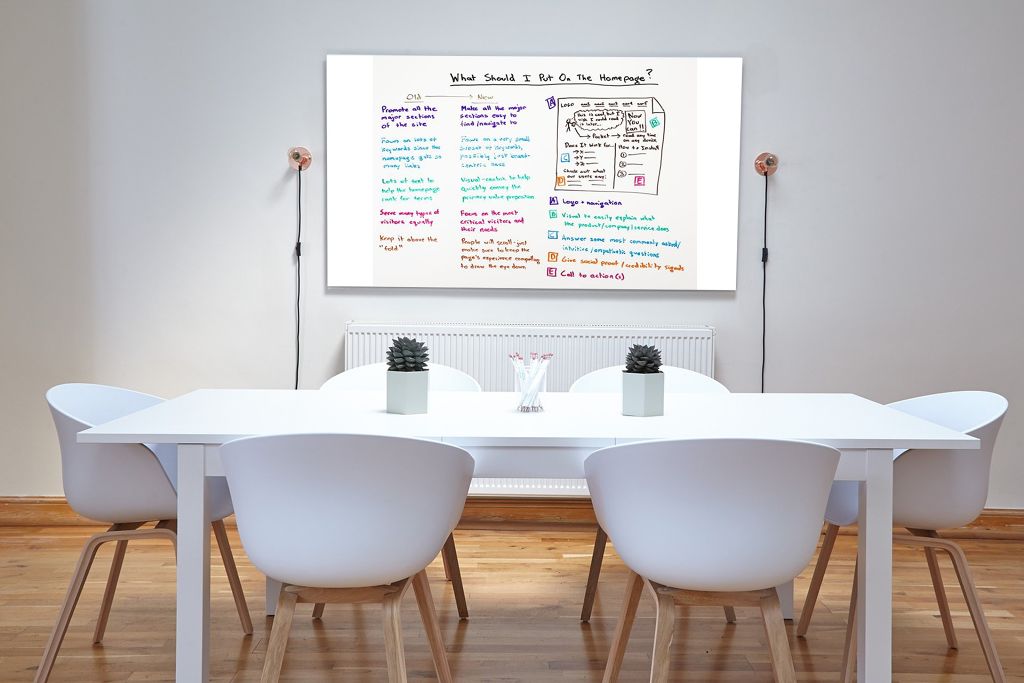 What Should I Put On The Homepage?
Old → New
Promote all the
major sections
of the site
Focus on lots of
keywords since the
homepage gets so
many links
Lots of text to
help the homepage
rank for terms
Serve many types of
visitors equally
Keep it above the
"fold"
Make all the major
sections easy to
find/navigate to
Focus on a very small
subset of keywords,
possibly just brand-
centric ones
Visual-centric to help
quickly convey the
primary value proposition
Focus on the most
critical visitors and
their needs
People will scroll-just
make sure to keep the
page's experience compelling
to draw the eye down
A
LOGO
This is cool, but I
wish I could read
it later...
Now
You
Can!!
B
→ Pocket → read any time
on any device
Does It Work for...
→ x
→ y
→ z
C
How to Install
1
2
3
Check out what
our users say:
D
E
A Logo + navigation
B Visual to easily explain what
the product/company/service does
C Answer some most commonly asked/
intuitive/empathetic questions
D Give social proof/credibility signals
E Call to action(s)